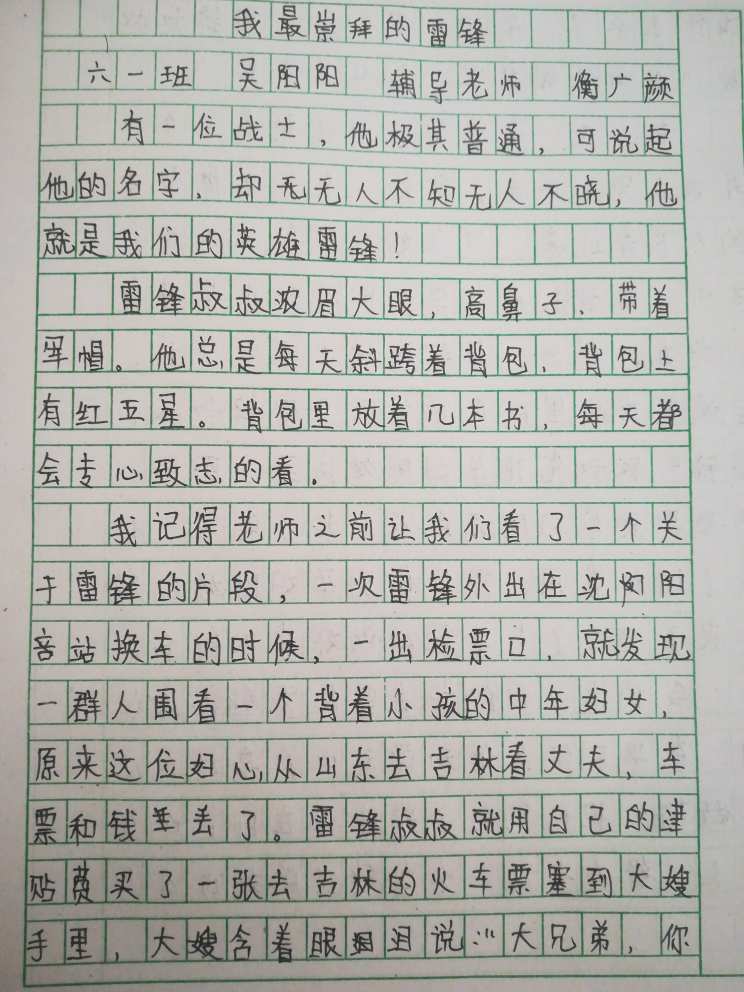 我最崇拜的雷锋
六一班 吴阳阳 辅导老师 衡广颜
有一位战士，他极其普通，可说起
他的名字，却无无人不知无人不晓，他
就是我们的英雄雷锋！
雷锋叔叔浓眉大眼，高鼻子、带着
军帽。他总是每天斜跨着背包，背包上
有红五星。背包里放着几本书，每天都
会专心致志的看。
我记得老师之前让我们看了一个关
于雷锋的片段，一次雷锋外出在沈阳
站换车的时候，一出检票口，就发现
一群人围看一个背着小孩的中年妇女，
原来这位妇心从山东去吉林看丈夫，车
票和钱丢了。雷锋叔叔就用自己的津
贴费买了一张去吉林的火车票塞到大嫂
手里，大嫂含着眼泪说：“大兄弟，你